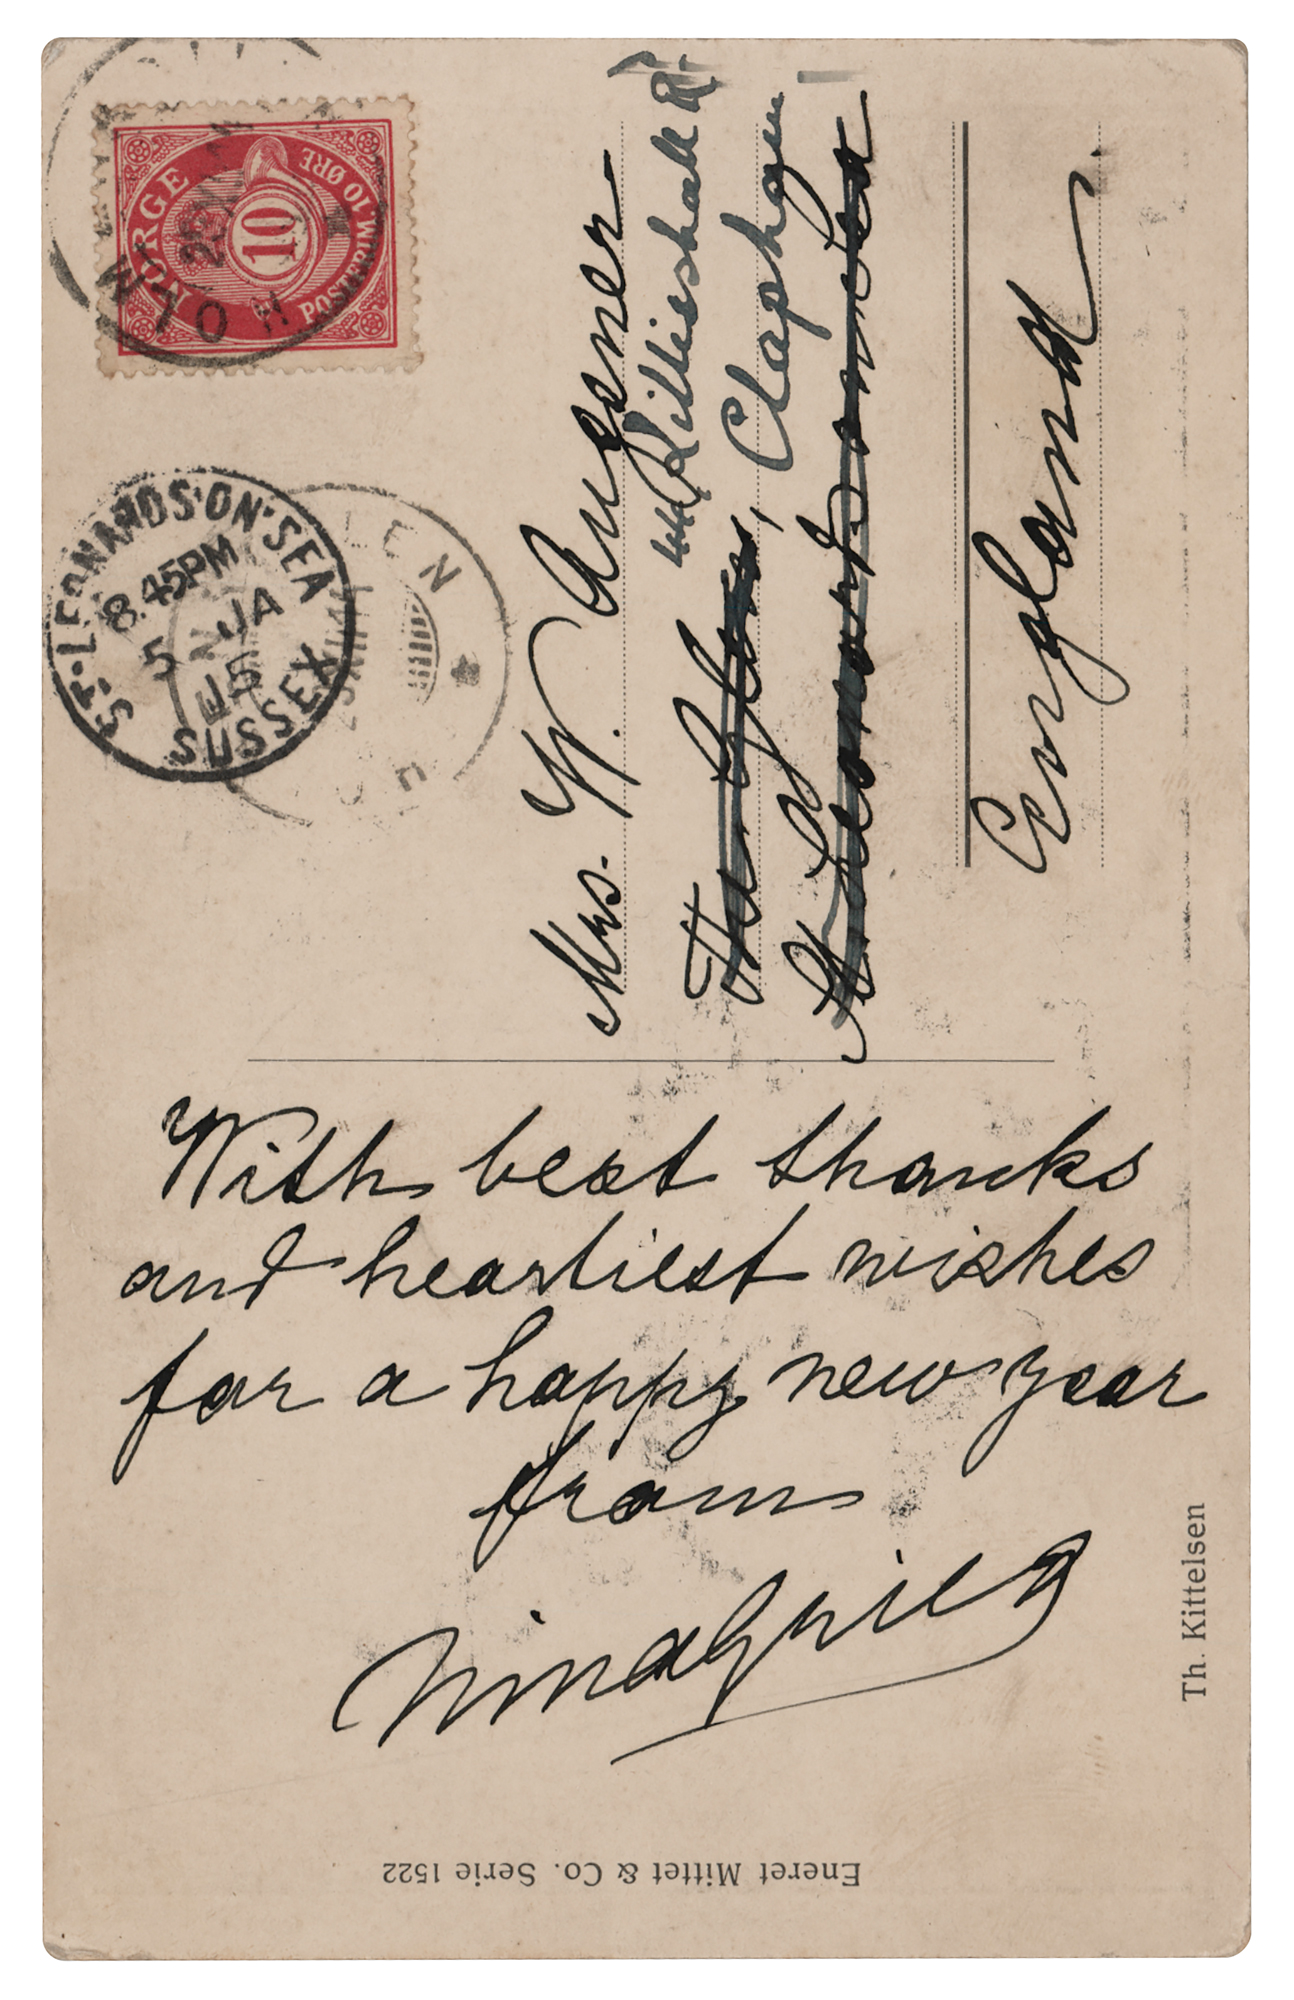 With best thanks
and heartiest wishes
for a happy new year
from
Nina Grieg
Mrs. W. Augener
Killieshall Rd
The Glen, Clapham
St Leonards on Sea
England
NORGE
10
POSTFRIM. 10 ØRE
ST. LEONARDS-ON-SEA
8.45PM
5 JA
15
SUSSEX
Th. Kittelsen
Eneret Mittet & Co. Serie 1522